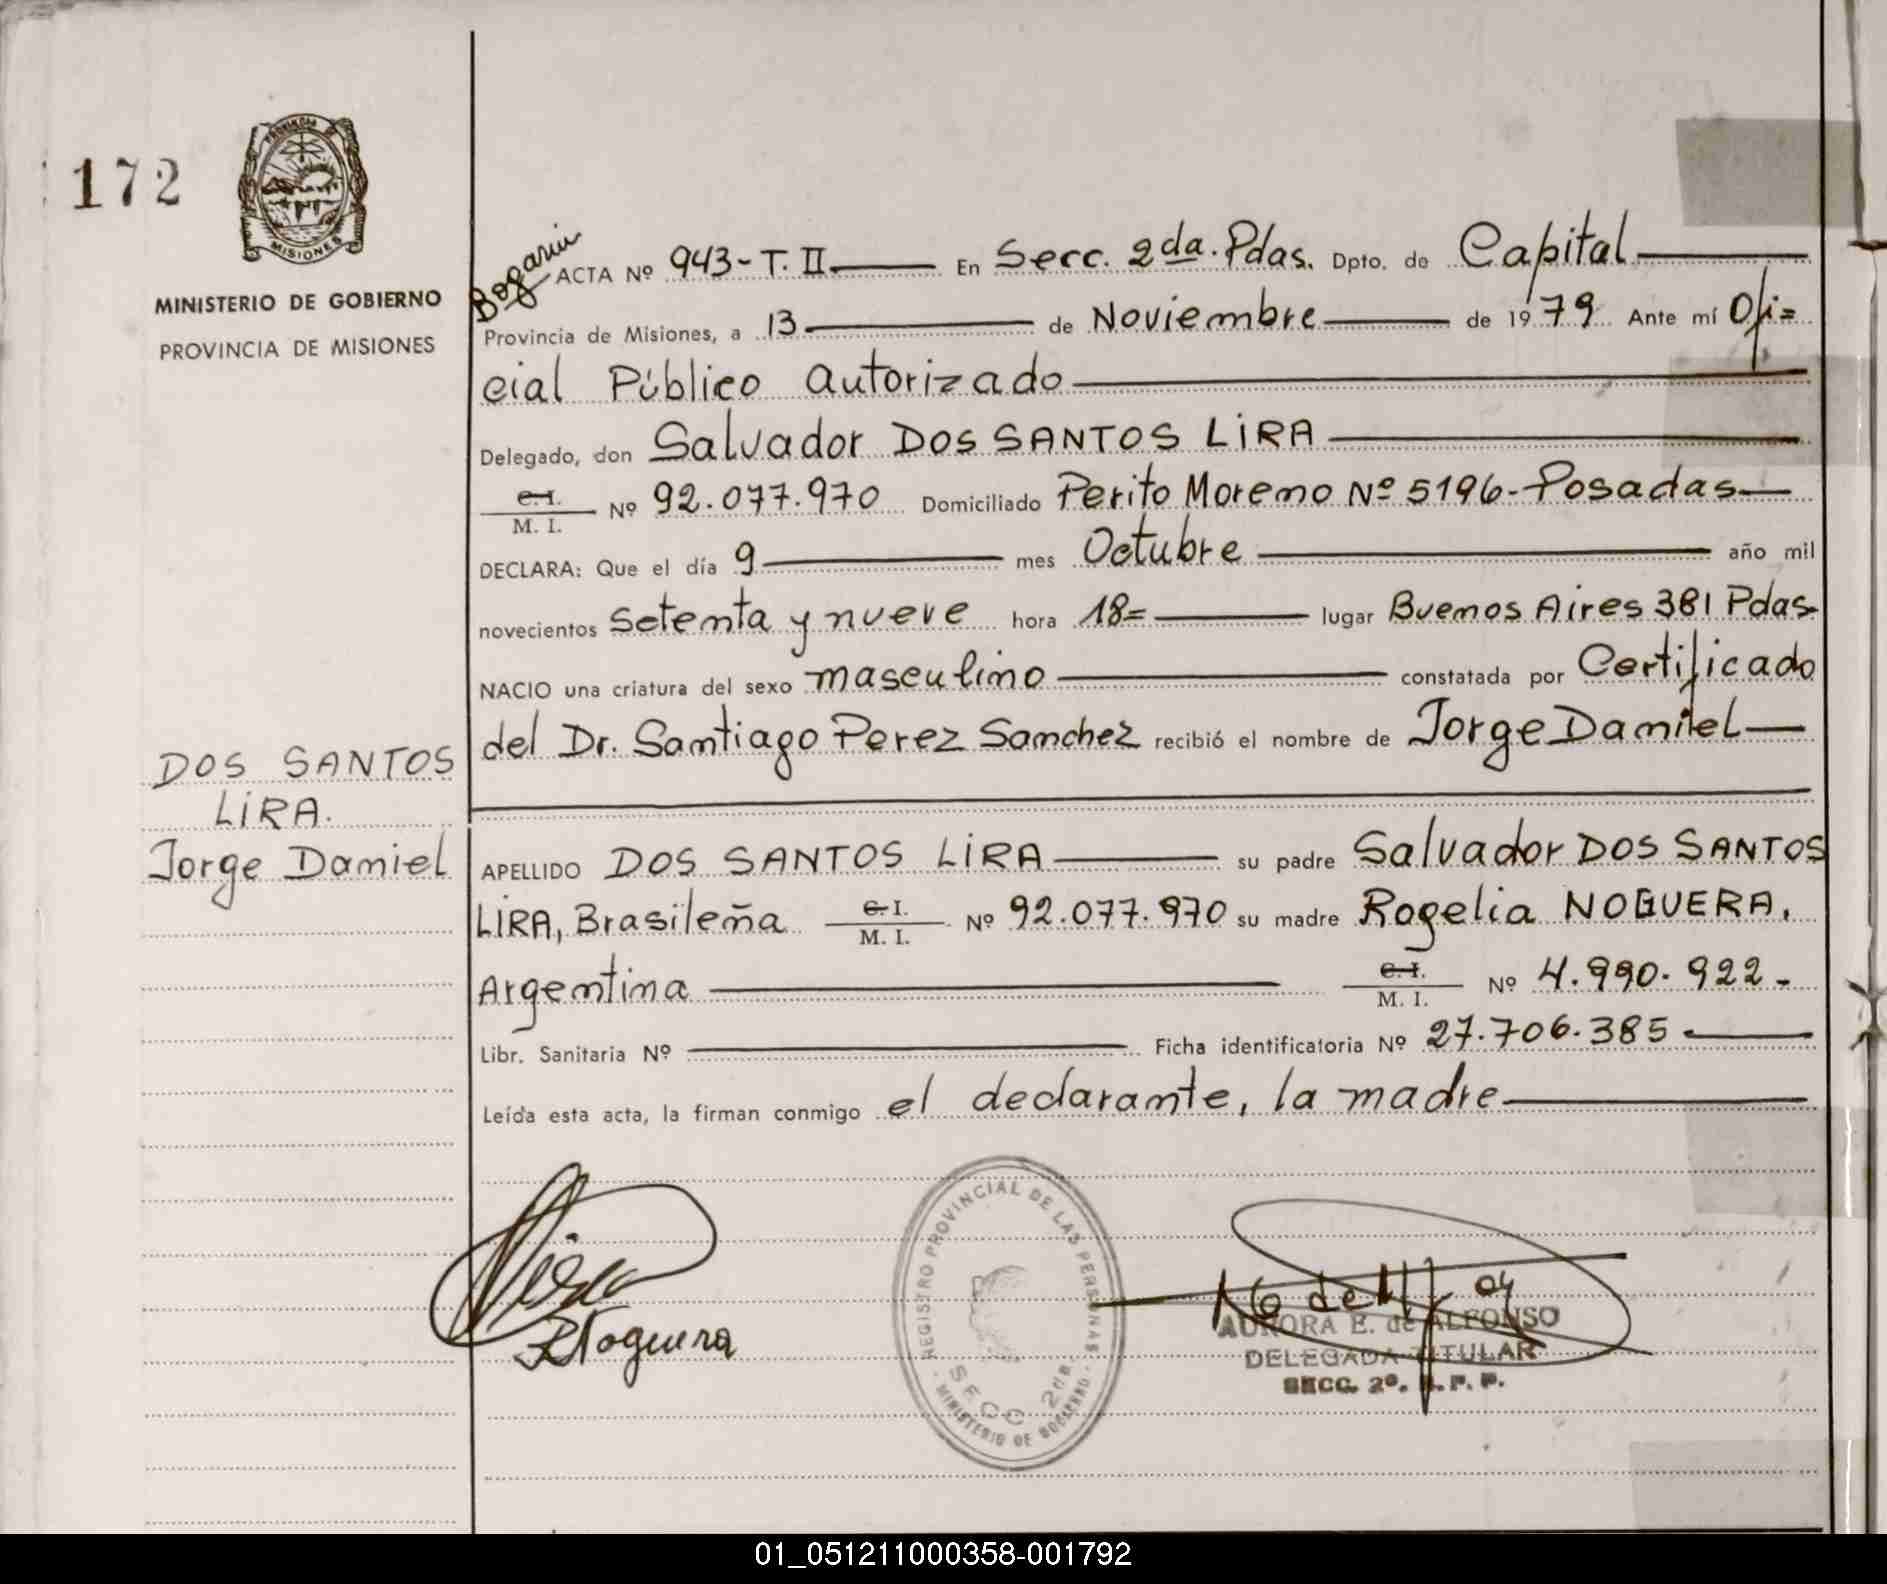 172
PROVINCIA DE
MISIONES
MINISTERIO DE GOBIERNO
PROVINCIA DE MISIONES
DOS SANTOS
LIRA.
Jorge Daniel
Bogarin
ACTA Nº 943-T. II En Secc. 2da. Pdas. Dpto. de Capital
Provincia de Misiones, a 13 de Noviembre de 1979 Ante mí Ofi=
cial Público Autorizado
Delegado, don Salvador DOS SANTOS LIRA
C. I. / M. I. Nº 92.077.970 Domiciliado Perito Moreno Nº 5196-Posadas
DECLARA: Que el día 9 mes Octubre año mil
novecientos setenta y nueve hora 18= lugar Buenos Aires 381 Pdas.
NACIO una criatura del sexo masculino constatada por Certificado
del Dr. Santiago Perez Sanchez recibió el nombre de Jorge Daniel
APELLIDO DOS SANTOS LIRA su padre Salvador DOS SANTOS
LIRA, Brasileña C. I. / M. I. Nº 92.077.970 su madre Rogelia NOGUERA,
Argentina C. I. / M. I. Nº 4.990.922-
Libr. Sanitaria Nº Ficha identificatoria Nº 27.706.385
Leída esta acta, la firman conmigo el declarante, la madre
R Noguera
REGISTRO PROVINCIAL DE LAS PERSONAS
SECC 2da.
MINISTERIO DE GOBIERNO
AURORA E. de ALFONSO
DELEGADA TITULAR
SECC. 2º. R. P. P.
01_051211000358-001792